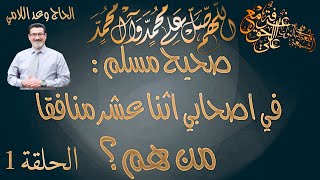 الحاج وعد اللامي
اللهم صل على محمد وآل محمد
صحيح مسلم :
في اصحابي اثنا عشر منافقا
من هم ؟
الحلقة 1